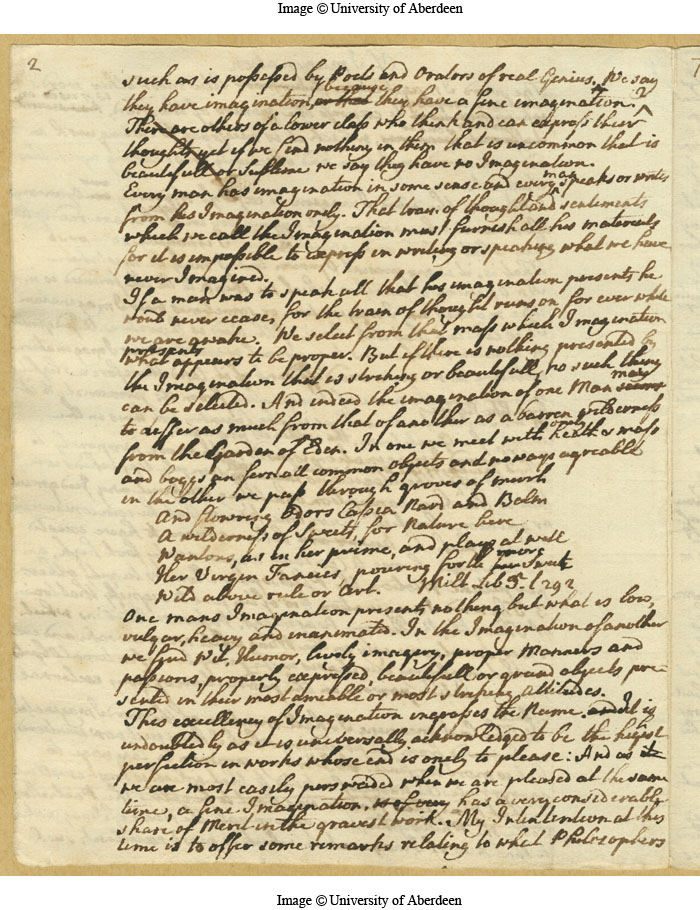 Image © University of Aberdeen
2
such as is possessed by Poets and Orators of real Genius. We say
they have imagination, or that because they have a fine imagination.
There are others of a lower class who think and can express their
thoughts yet if we find nothing in them that is uncommon that is
beautifull or Sublime we say they have no Imagination.
Every man has imagination in some sense and every man speaks or writes
from his Imagination onely. That train of thought and sentiments
which we call the Imagination must furnish all his materials
for it is impossible to express in writing or speaking what we have
never Imagined.
If a man was to speak all that his imagination presents he
would never cease, for the train of thought runs on for ever while
we are awake. We select from that mass which Imagination
presents what appears to be proper. But if there is nothing presented by
the Imagination that is striking or beautifull, no such thing
can be selected. And indeed the imagination of one Man may seems
to differ as much from that of another as a barren wilderness
from the Garden of Eden. In one we meet with onely heath & moss
and boggs fern all common objects and no ways agreeable
in the other we pass through groves of myrrh
And flowring Odors Cassia Nard and Balm
A wilderness of Sweets, for Nature here
Wantons, as in her prime, and plays at will
Her Virgin Fancies, pouring forth more Sweet
Wild above rule or Art. Milt Lib 5. l 292
One mans Imagination presents nothing but what is low,
vulgar, heavy and inanimated. In the Imagination of another
we find Wit, Humor, lively imagery, proper Manners and
passions, properly expressed, beautifull or grand objects pre-
sented in their most amiable or most striking attitudes.
This excellency of Imagination ingrosses the Name. and It is
undoubtedly as it is universally acknowledged to be the highest
perfection in works whose end is onely to please: And as it
we are most easily perswaded when we are pleased at the same
time, a fine Imagination, has a very considerable
share of Merit in the gravest work. My Intention at this
time is to offer some remarks relating to what Philosophers
Image © University of Aberdeen